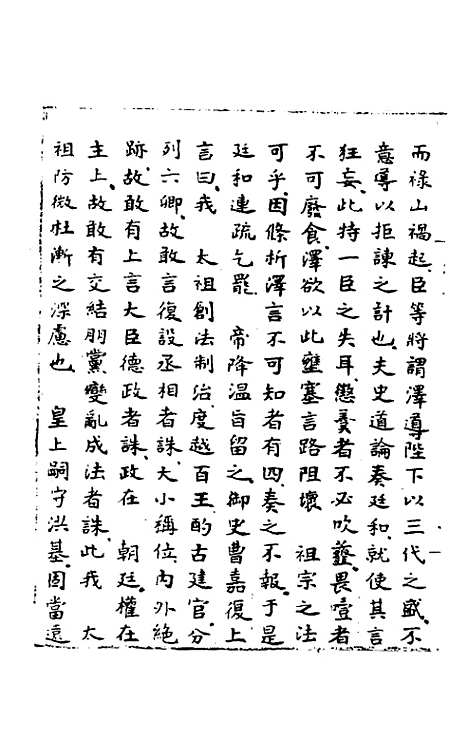 而祿山禍起臣等將謂澤導陛下以三代之盛不
意導以拒諫之計也夫史道論奏廷和就使其言
狂妄此特一臣之失耳懲羹者不必吹虀畏噎者
不可廢食澤欲以此壅塞言路阻壞　祖宗之法
可乎因條析澤言不可知者有四奏之不報于是
廷和連疏乞罷　帝降溫旨留之御史曹嘉復上
言曰我　太祖創法制治度越百王酌古建官分
列六卿故敢言復設丞相者誅大小稱位內外絕
跡故敢有上言大臣德政者誅政在　朝廷權在
主上故敢有交結朋黨變亂成法者誅此我　太
祖防微杜漸之深慮也　皇上嗣守洪基固當遠